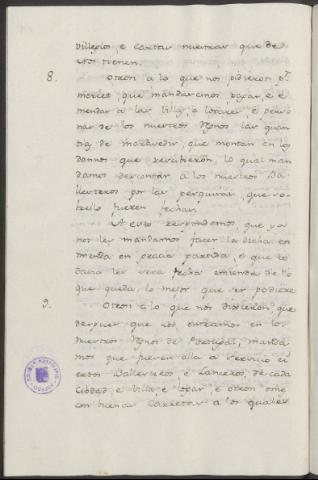 villegios, e cartas nuestras que de
Nos tienen.
8. Otrosi a lo que nos pidieron el
merlet que mandarcinos pagar, e e
mendar a las Villas, e lotares, e perso
nas de los nuestros Reynos las quan
tias de maravedis, que montan en los
dannos que rescibieron, lo qual man
damos descontar a los nuestros Ba
llesteros por las pesquisas que so
brello fueren fechas.
A esto respondemos, que ya
nos les mandamos facer la dicha en
mienda en oracia pasada, e que to
davia les sera fecha emienda de lo
que queda, lo mejor que ser podiere
9. Otrosi a lo que nos dixieron, que
despues que nos entramos en los
nuestros Reynos de Portugal, manda
mos que fuesen alla a servicio ci
ertos Ballesteros, e Lanceros, de cada
Cibdad, e Villa, e logar, e otros omes
con buenas carretas a los quales